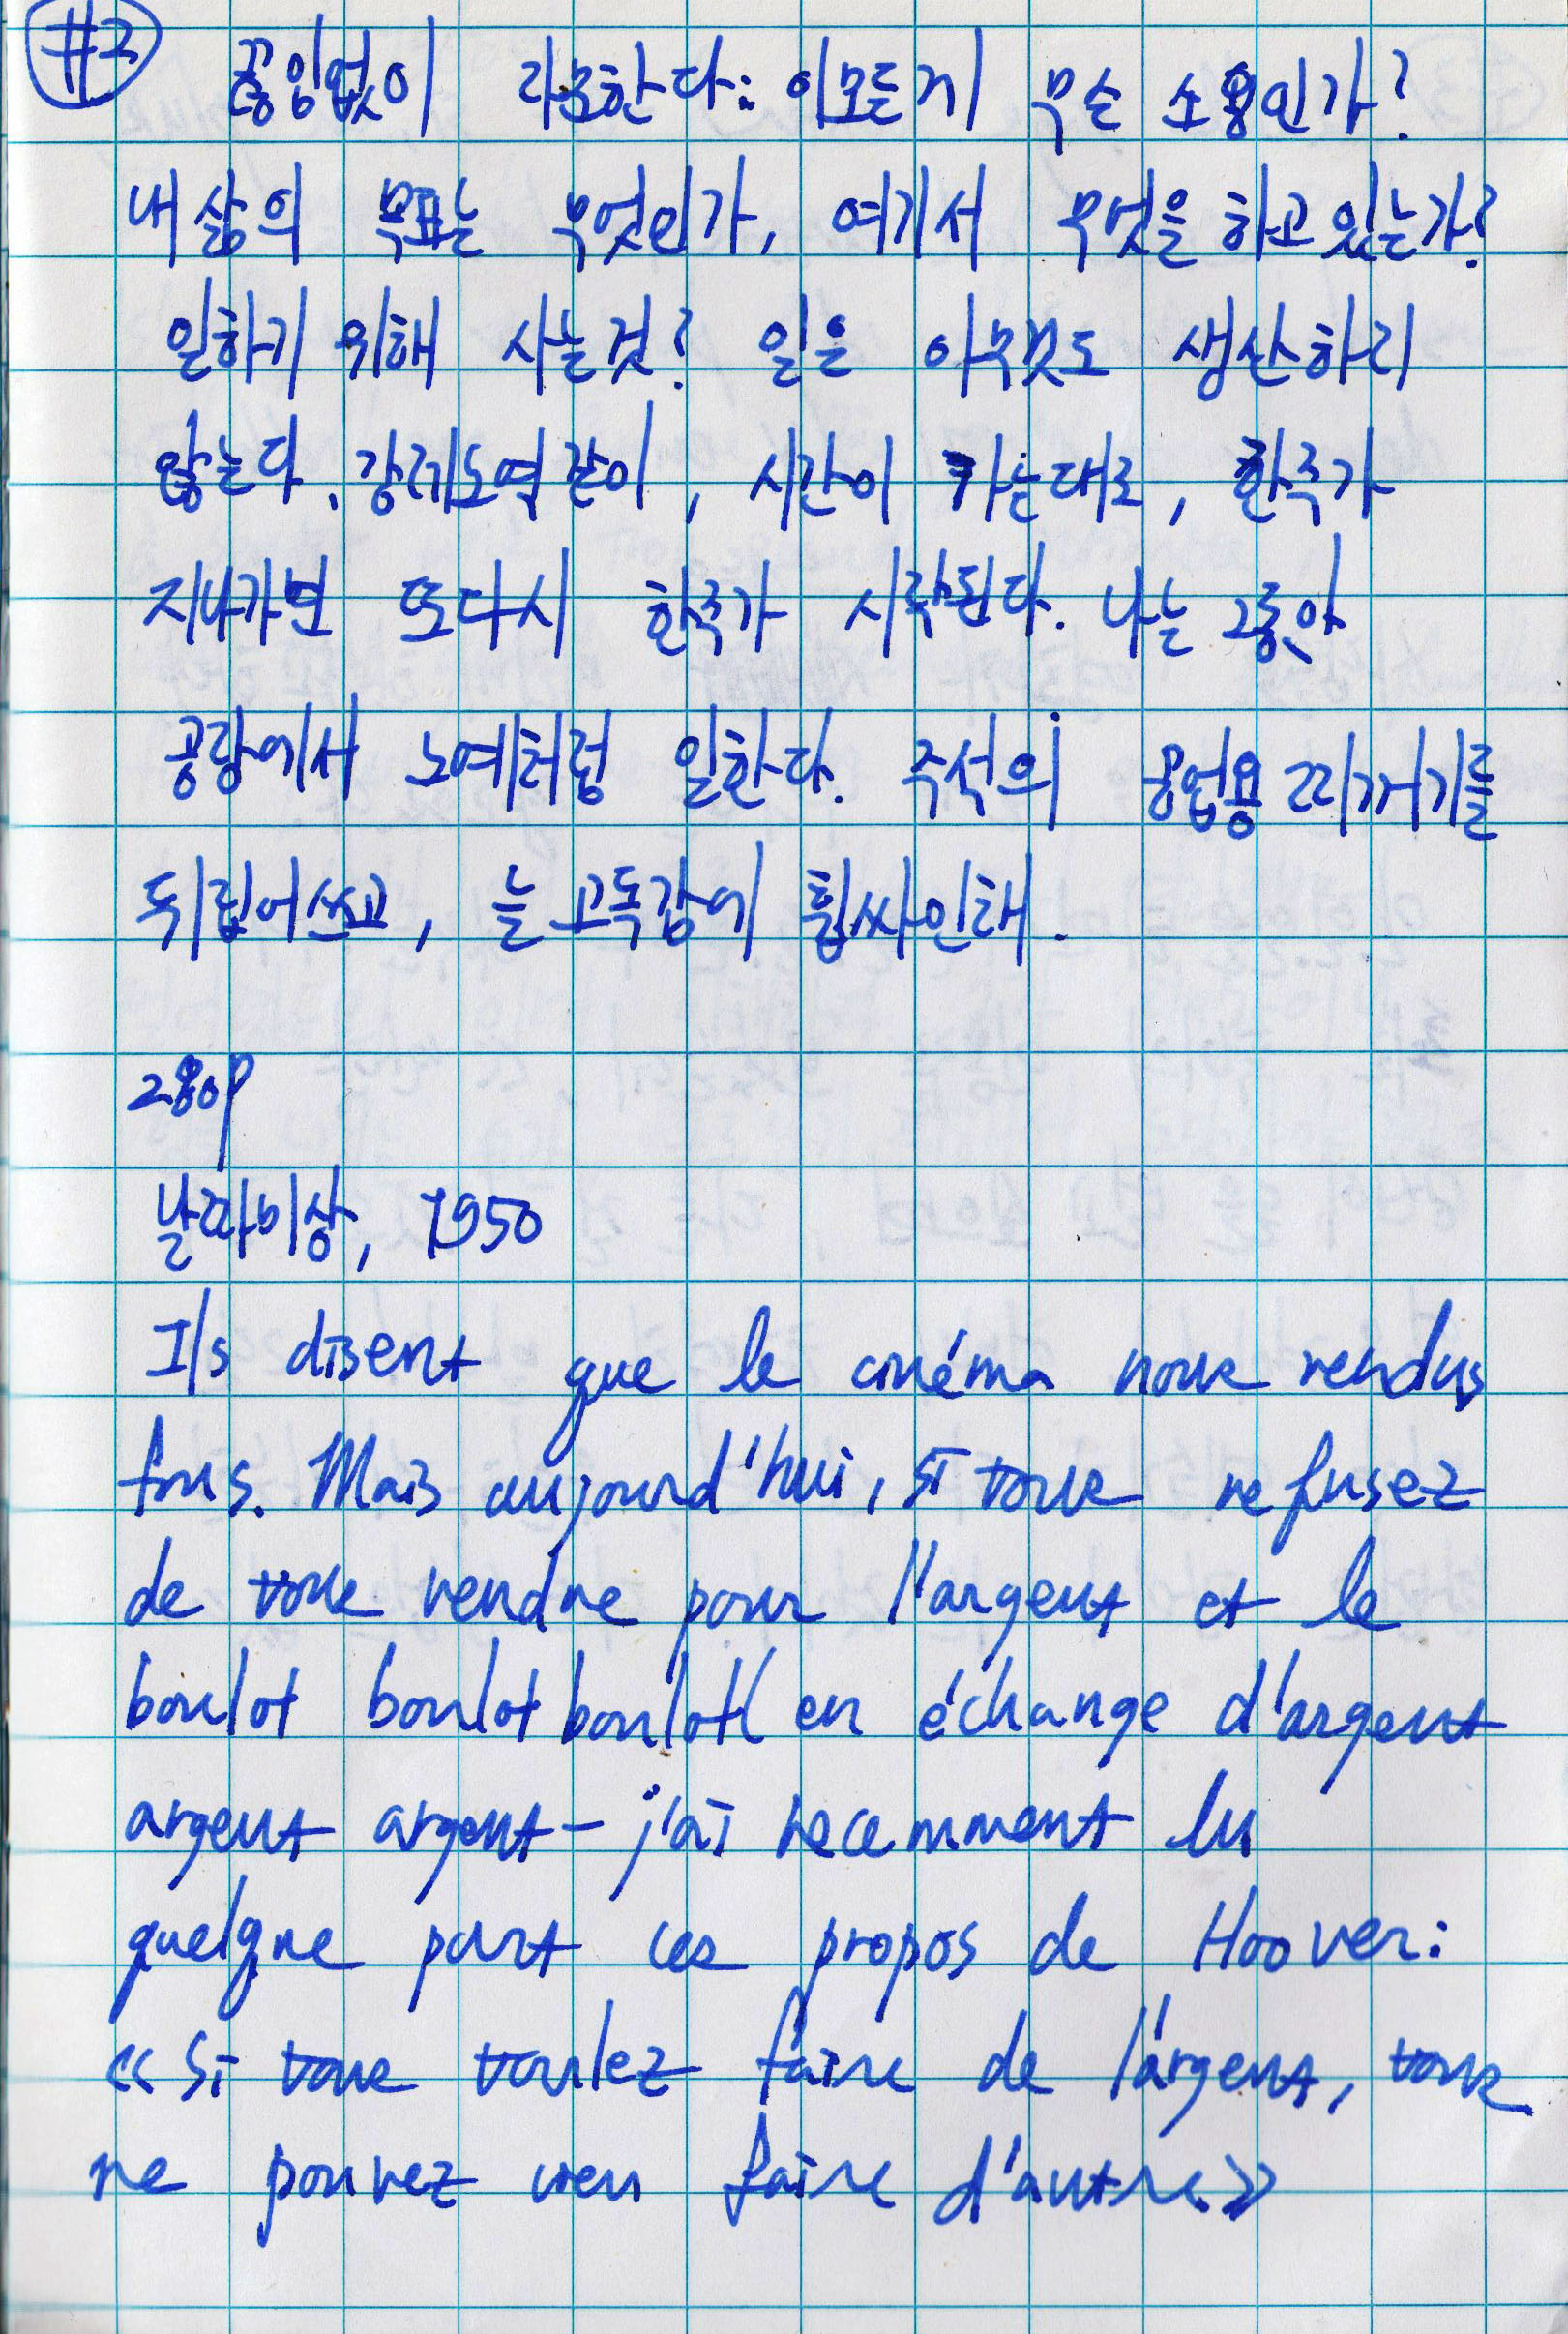 #2
끊임없이 자문한다: 이모든게 무슨 소용인가?
내 삶의 목표는 무엇인가, 여기서 무엇을 하고 있는가?
일하기 위해 사는것? 일은 아무것도 생산하지
않는다. 강제노역 같이, 시간이 가는대로, 한주가
지나가면 또다시 한주가 시작된다. 나는 그동안
공장에서 노예처럼 일한다. 주석의 공업용 찌꺼기를
뒤집어쓰고, 늘 고독감에 휩싸인채.
280p
날짜미상, 1950
Ils disent que le cinéma nous rendus
fous. Mais aujourd'hui, si vous refusez
de vous vendre pour l'argent et le
boulot boulot boulot en échange d'argent
argent argent - j'ai recemment lu
quelque part ces propos de Hoover:
«Si vous voulez faire de l'argent, vous
ne pouvez rien faire d'autre»